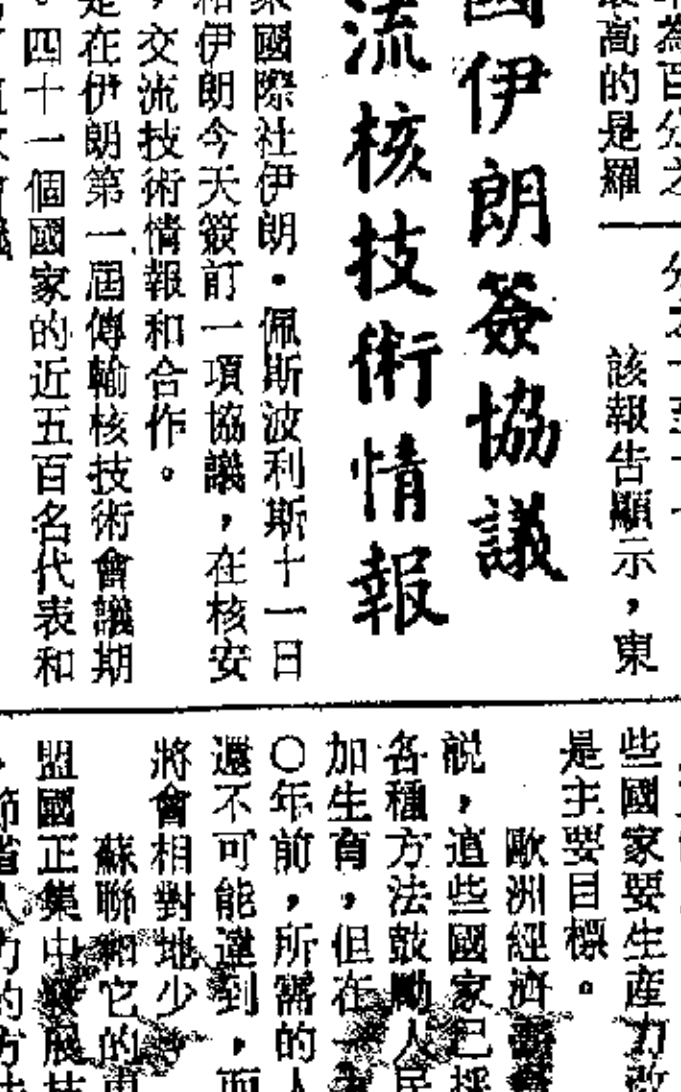 年為百分之
最高的是羅
分之十至十一
該報告顯示，東
國伊朗簽協議
流核技術情報
家國際社伊朗・佩斯波利斯十一日
和伊朗今天簽訂一項協議，在核安
，交流技術情報和合作。
是在伊朗第一屆傳輸核技術會議期
。四十一個國家的近五百名代表和
些國家要生產力改
是主要目標。
歐洲經濟
說，這些國家已採
各種方法鼓勵人民
加生育，但在一
〇年前，所需的人
還不可能達到，而
將會相對地少
蘇聯和它的
盟國正集中發展技
，節省人力的方法